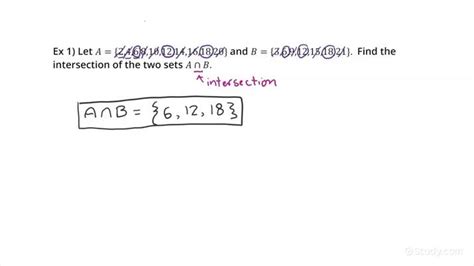 Ex 1) Let A = {2,4,6,8,10,12,14,16,18,20} and B = {3,6,9,12,15,18,21}. Find the
intersection of the two sets A ∩ B.
intersection
A∩B = {6, 12, 18}
Study.com